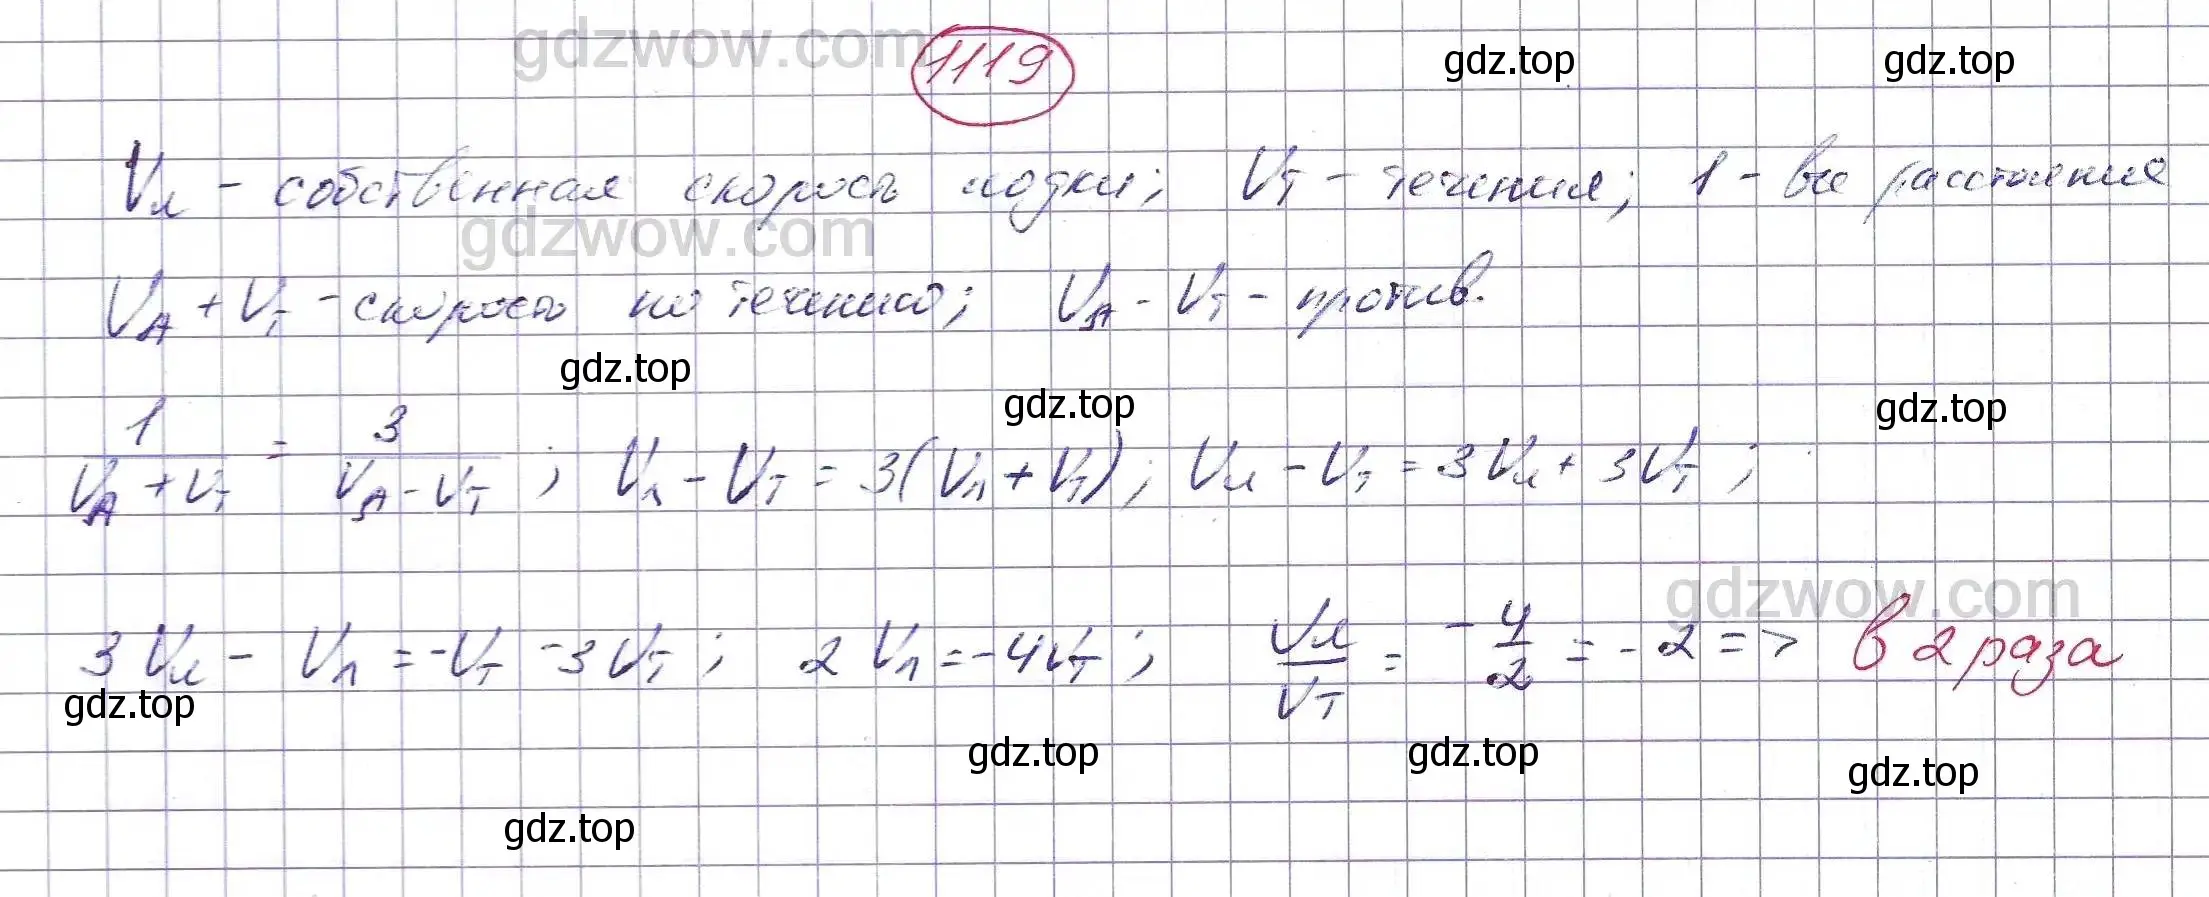 gdzwow.com
1119
gdz.top gdz.top
Vл - собственная скорость лодки; Vт - течения; 1 - все расстояние
gdzwow.com
Vл + Vт - скорость по течению; Vл - Vт - против.
gdz.top gdz.top gdz.top
1/(Vл + Vт) = 3/(Vл - Vт); Vл - Vт = 3(Vл + Vт); Vл - Vт = 3Vл + 3Vт;
gdzwow.com
3Vл - Vл = -Vт - 3Vт; 2Vл = -4Vт; Vл/Vт = -4/2 = -2 => в 2 раза
gdz.top gdz.top gdz.top gdz.top
gdz.top